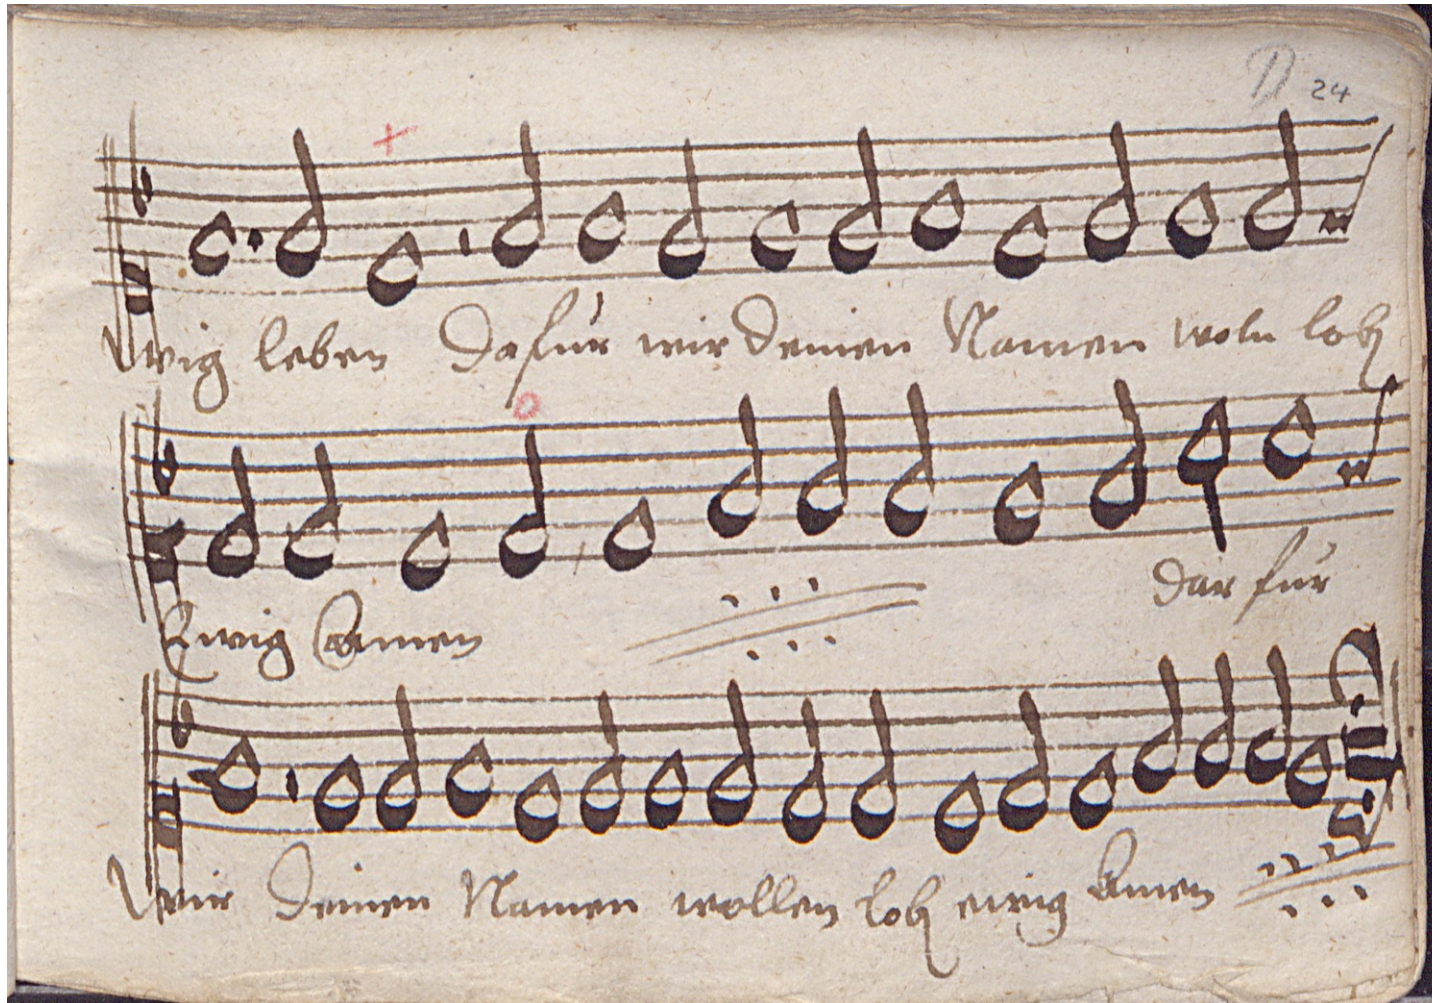 D 24
Ewig leben Dafür wir Deinen Namen woln lob
Ewig Amen
Dar für
Wir Deinen Namen wollen lob ewig Amen